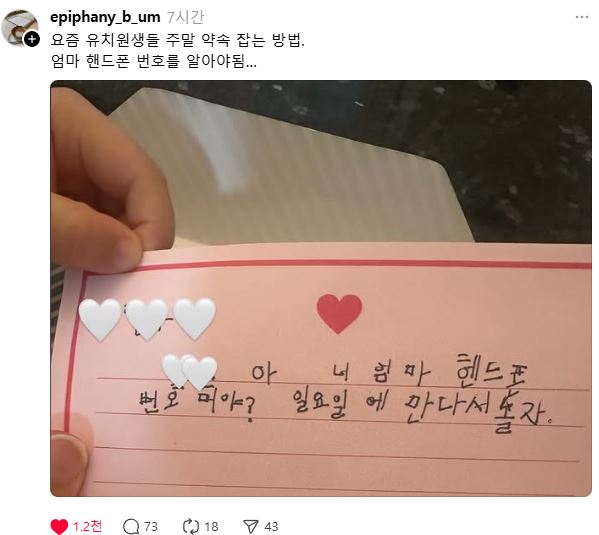 epiphany_b_um 7시간
요즘 유치원생들 주말 약속 잡는 방법.
엄마 핸드폰 번호를 알아야됨...
아 너 엄마 헨드폰
번호 머야? 일요일에 만다서놀자.
1.2천 73 18 43